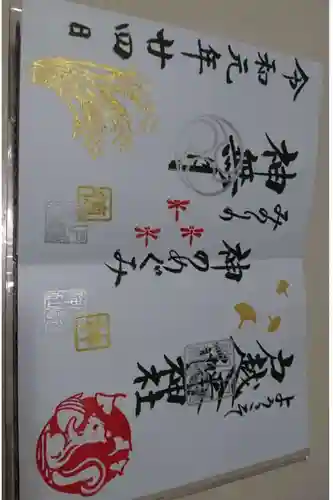 ようこそ
戸越八幡神社
みのりの
神のめぐみ
神無月
令和元年廿四日